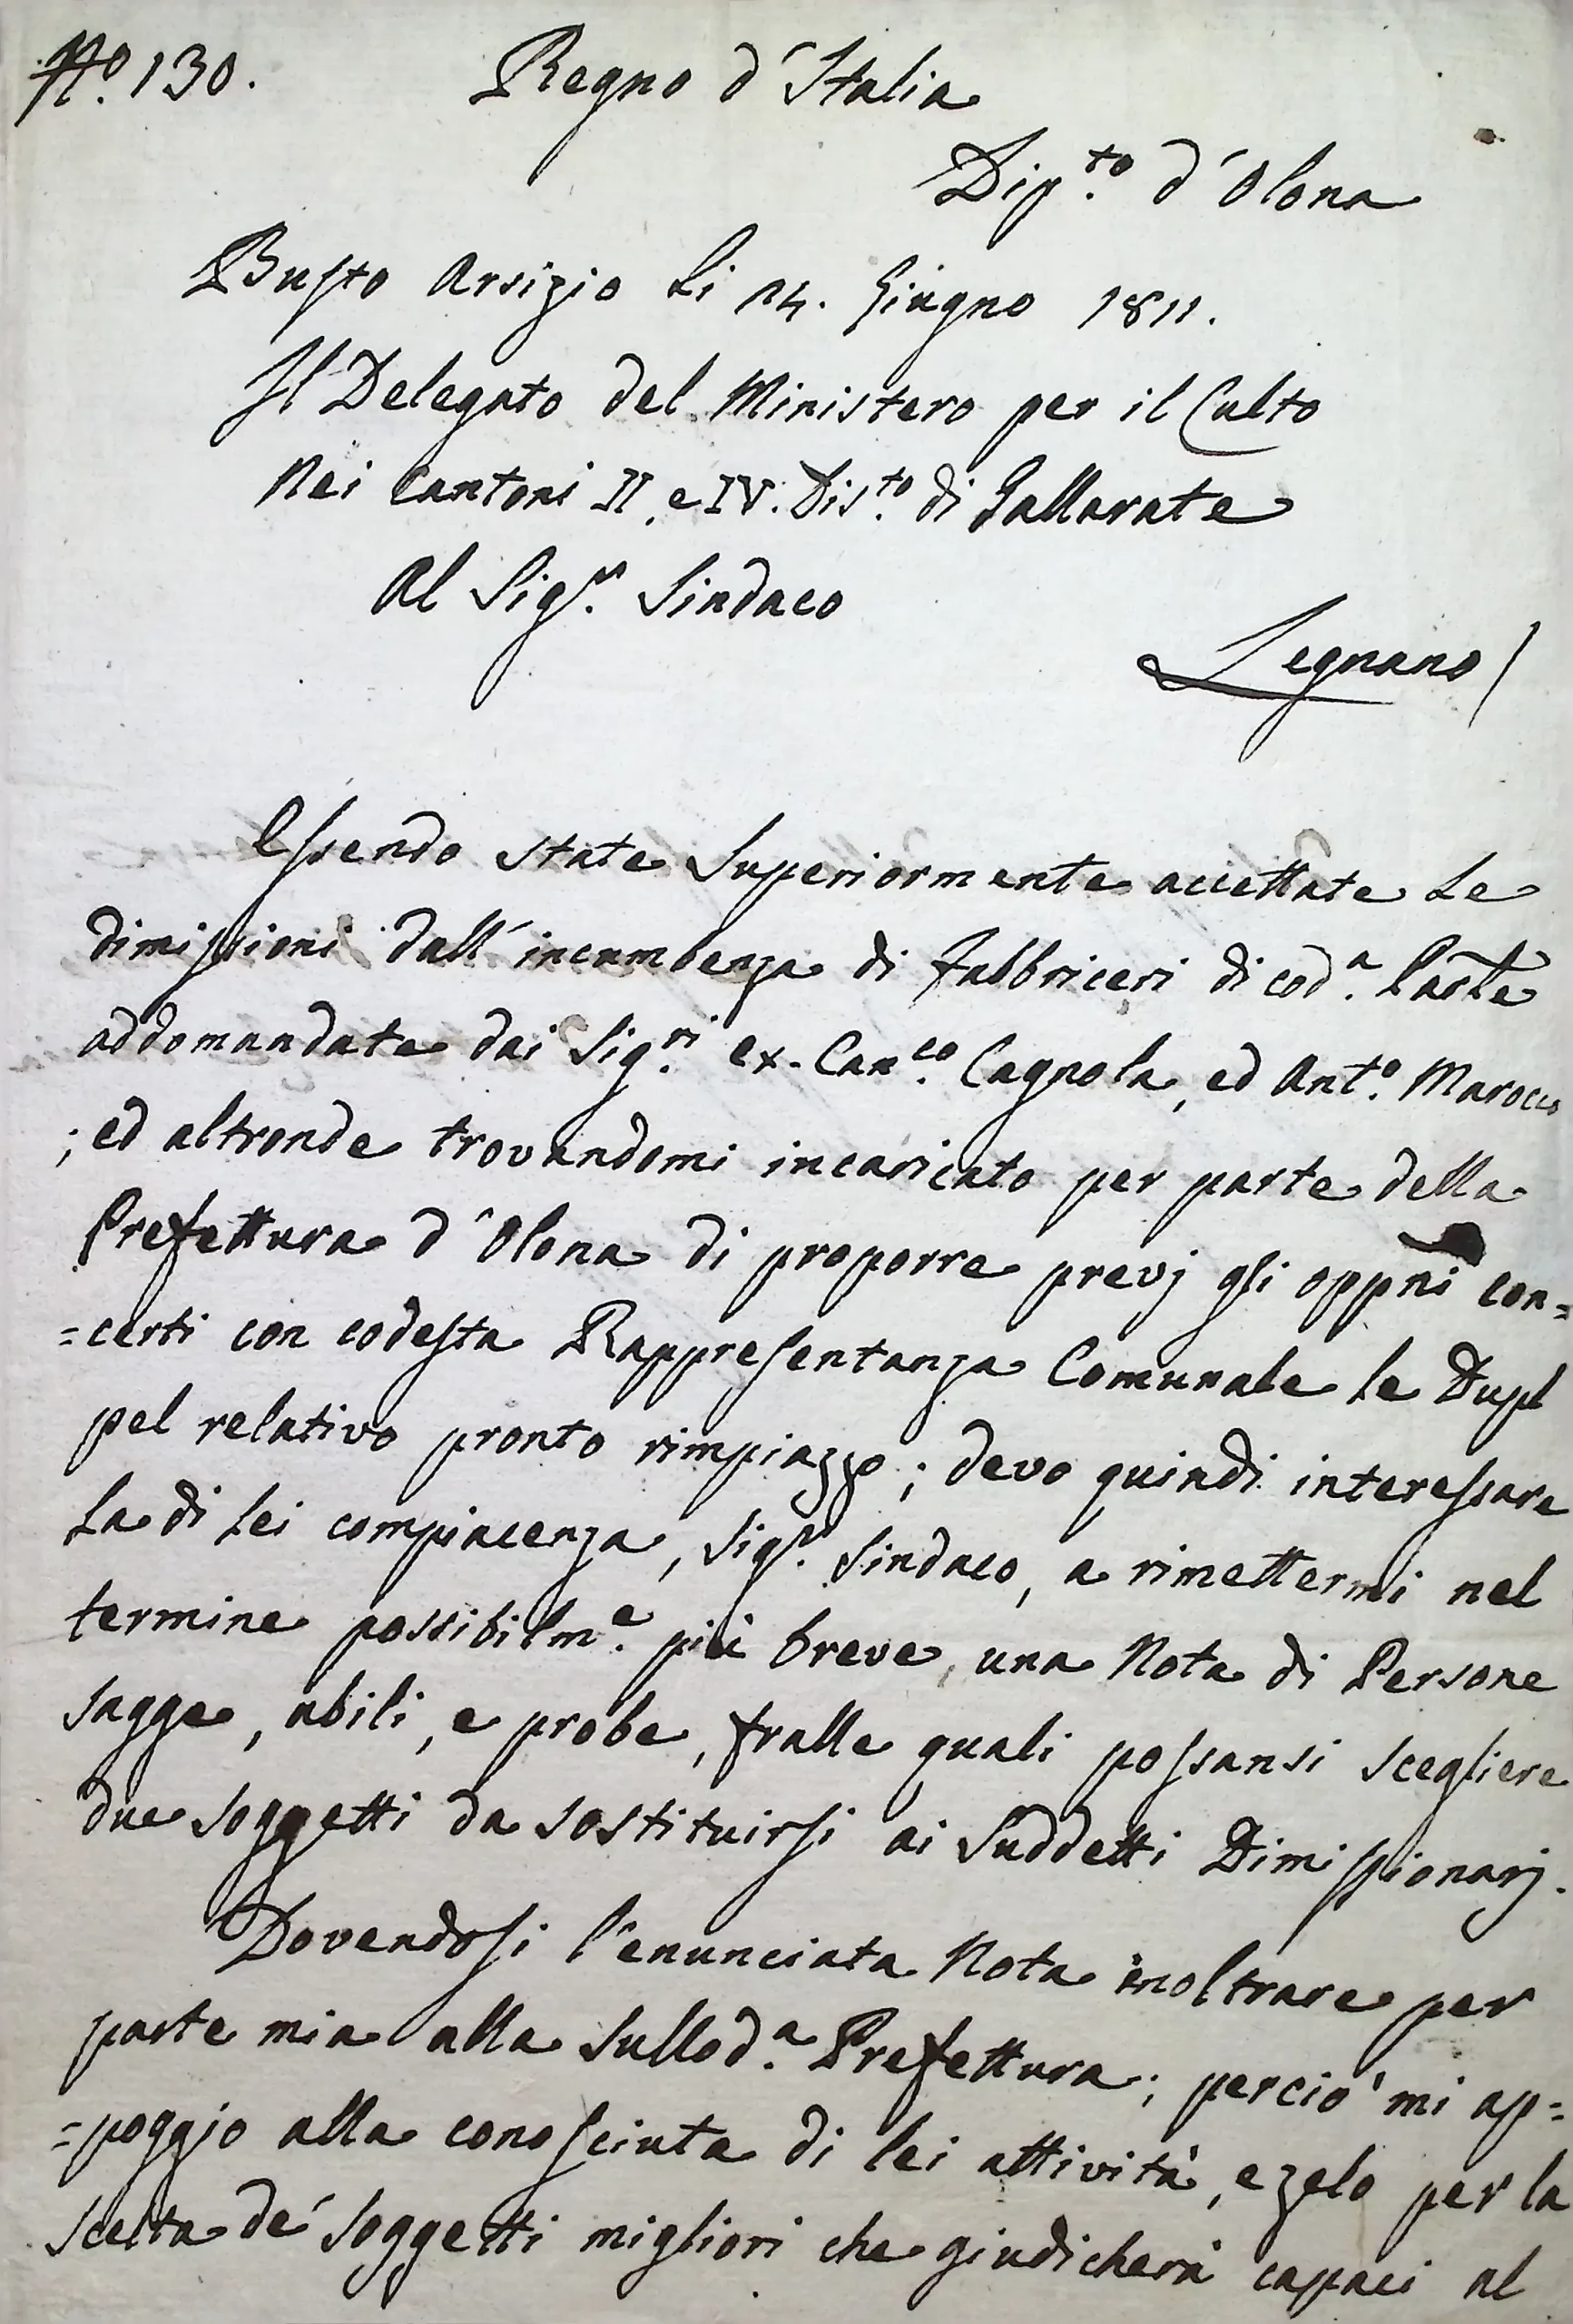 N.º 130.
Regno d'Italia
Dip.to d'Olona
Busto Arsizio Li 14. Giugno 1811.
Il Delegato del Ministero per il Culto
Nei Cantoni II. e IV. Dis.to di Gallarate
Al Sig.r Sindaco
Legnano
Essendo state Superiormente accettate Le
dimissioni dall'incumbenza di fabbriceri di cod.a
addomandate dai Sig.ri ex-Can.co Cagnola, ed Ant.o Marocco
; ed altronde trovandomi incaricato per parte della
Prefettura d'Olona di proporre previ gli oppni con=
=certi con codesta Rappresentanza Comunale le Dupl
pel relativo pronto rimpiazzo; devo quindi interessare
La di Lei compiacenza, Sig.r Sindaco, a rimettermi nel
termine possibilm.e più breve, una Nota di Persone
sagge, abili, e probe, fralle quali possansi scegliere
due soggetti da sostituirsi ai Suddetti Dimissionarj.
Dovendosi l'enunciata Nota inoltrare per
parte mia alla Sullod.a Prefettura; perciò mi ap=
=poggio alla conosciuta di lei attività, e zelo per la
scelta de' Soggetti migliori che giudicherà capaci al